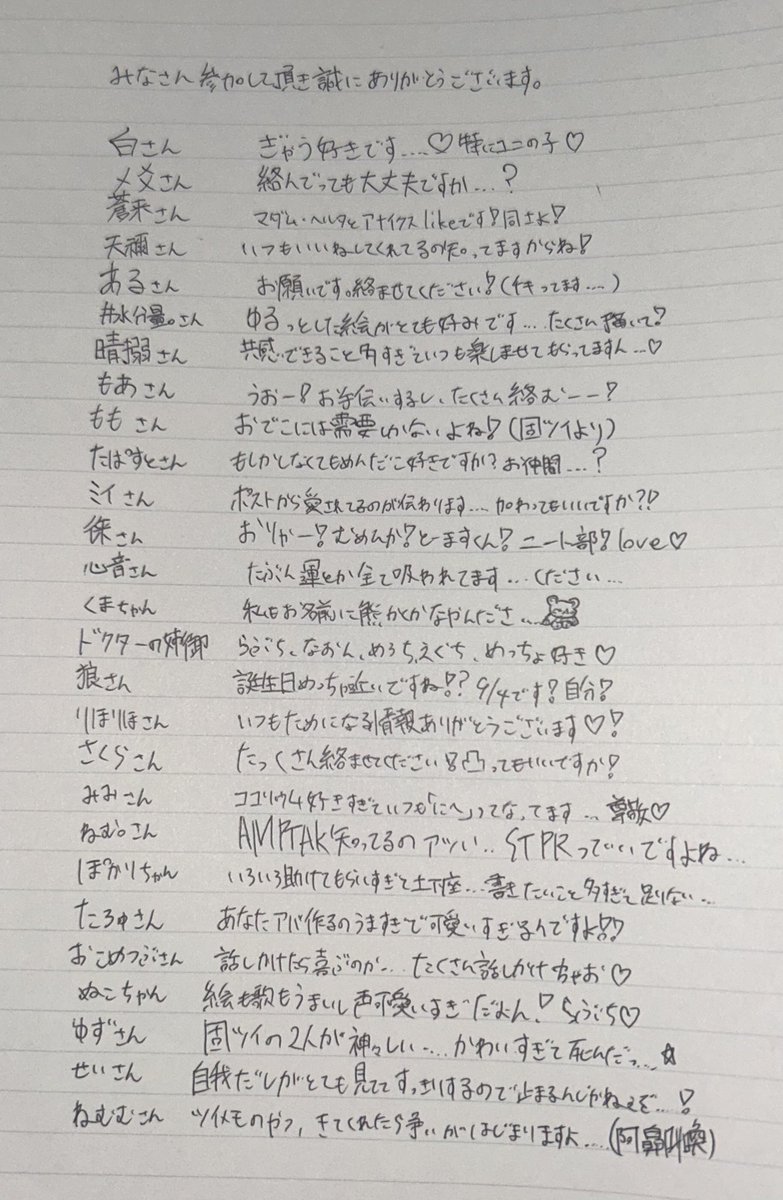 みなさん参加して頂き誠にありがとうございます。
白さん ぎゃう好きです....♡特にユニの子♡
メ爻さん 絡んでっても大丈夫ですか...?
蒼来さん マダム・ヘルタとアナイクスlikeです!同士よ!
天禰さん いつもいいねしてくれてるの知ってますからね!
あるさん お願いです。絡ませてください!(チキってます....)
#水分量。さん ゆるっとした絵がとても好みです...たくさん描いて!
晴搦さん 共感できること多すぎていつも楽しませてもらってますん...♡
もあさん うおー!お手伝いするし、たくさん絡むーー!
ももさん おでこには需要しかないよね!(固ツイより)
たぱすとさん もしかしなくてもめんだこ好きですか?お仲間...?
ミイさん ポストから愛されてるのが伝わります....加わってもいいですか?!
徠さん おりゃー!むめんか!とーますくん!ニート部!love♡
心音さん たぶん運とか全て吸われてます...ください...
くまちゃん 私もお名前に熊かくかなやんださ....
ドクターの姉御 らぶち、なおん、めろち、えぐち、めっちょ好き♡
狼さん 誕生日めっちゃ近いですね!?9/4です!自分!
りほりほさん いつもためになる情報ありがとうございます♡!
さくらさん たっくさん絡ませてください!凸ってもいいですか!
みみさん ココリウム好きすぎていつも「にへ」ってなってます...尊敬♡
ねむ。さん AMPTAK知ってるのアツい..STPRっていいですよね...
ぽかりちゃん いろいろ助けてもらいすぎて土下座...書きたいこと多すぎて足りない...
たろゆさん あなたアバ作るのうますぎで可愛いすぎるんですよ!!
おこめつぶさん 話しかけたら喜ぶのか...たくさん話しかけちゃお♡
ぬこちゃん 絵も歌もうまいし声可愛いすぎだよん!らぶち♡
ゆずさん 固ツイの2人が神々しい....かわいすぎて死んだっ...☆
せいさん 自我だしがとても見ててすっきりするので止まるんじゃねぇぞ...!
ねむむさん ツイメモのやつ、きてくれたら争いがはじまりますよ....(阿鼻叫喚)